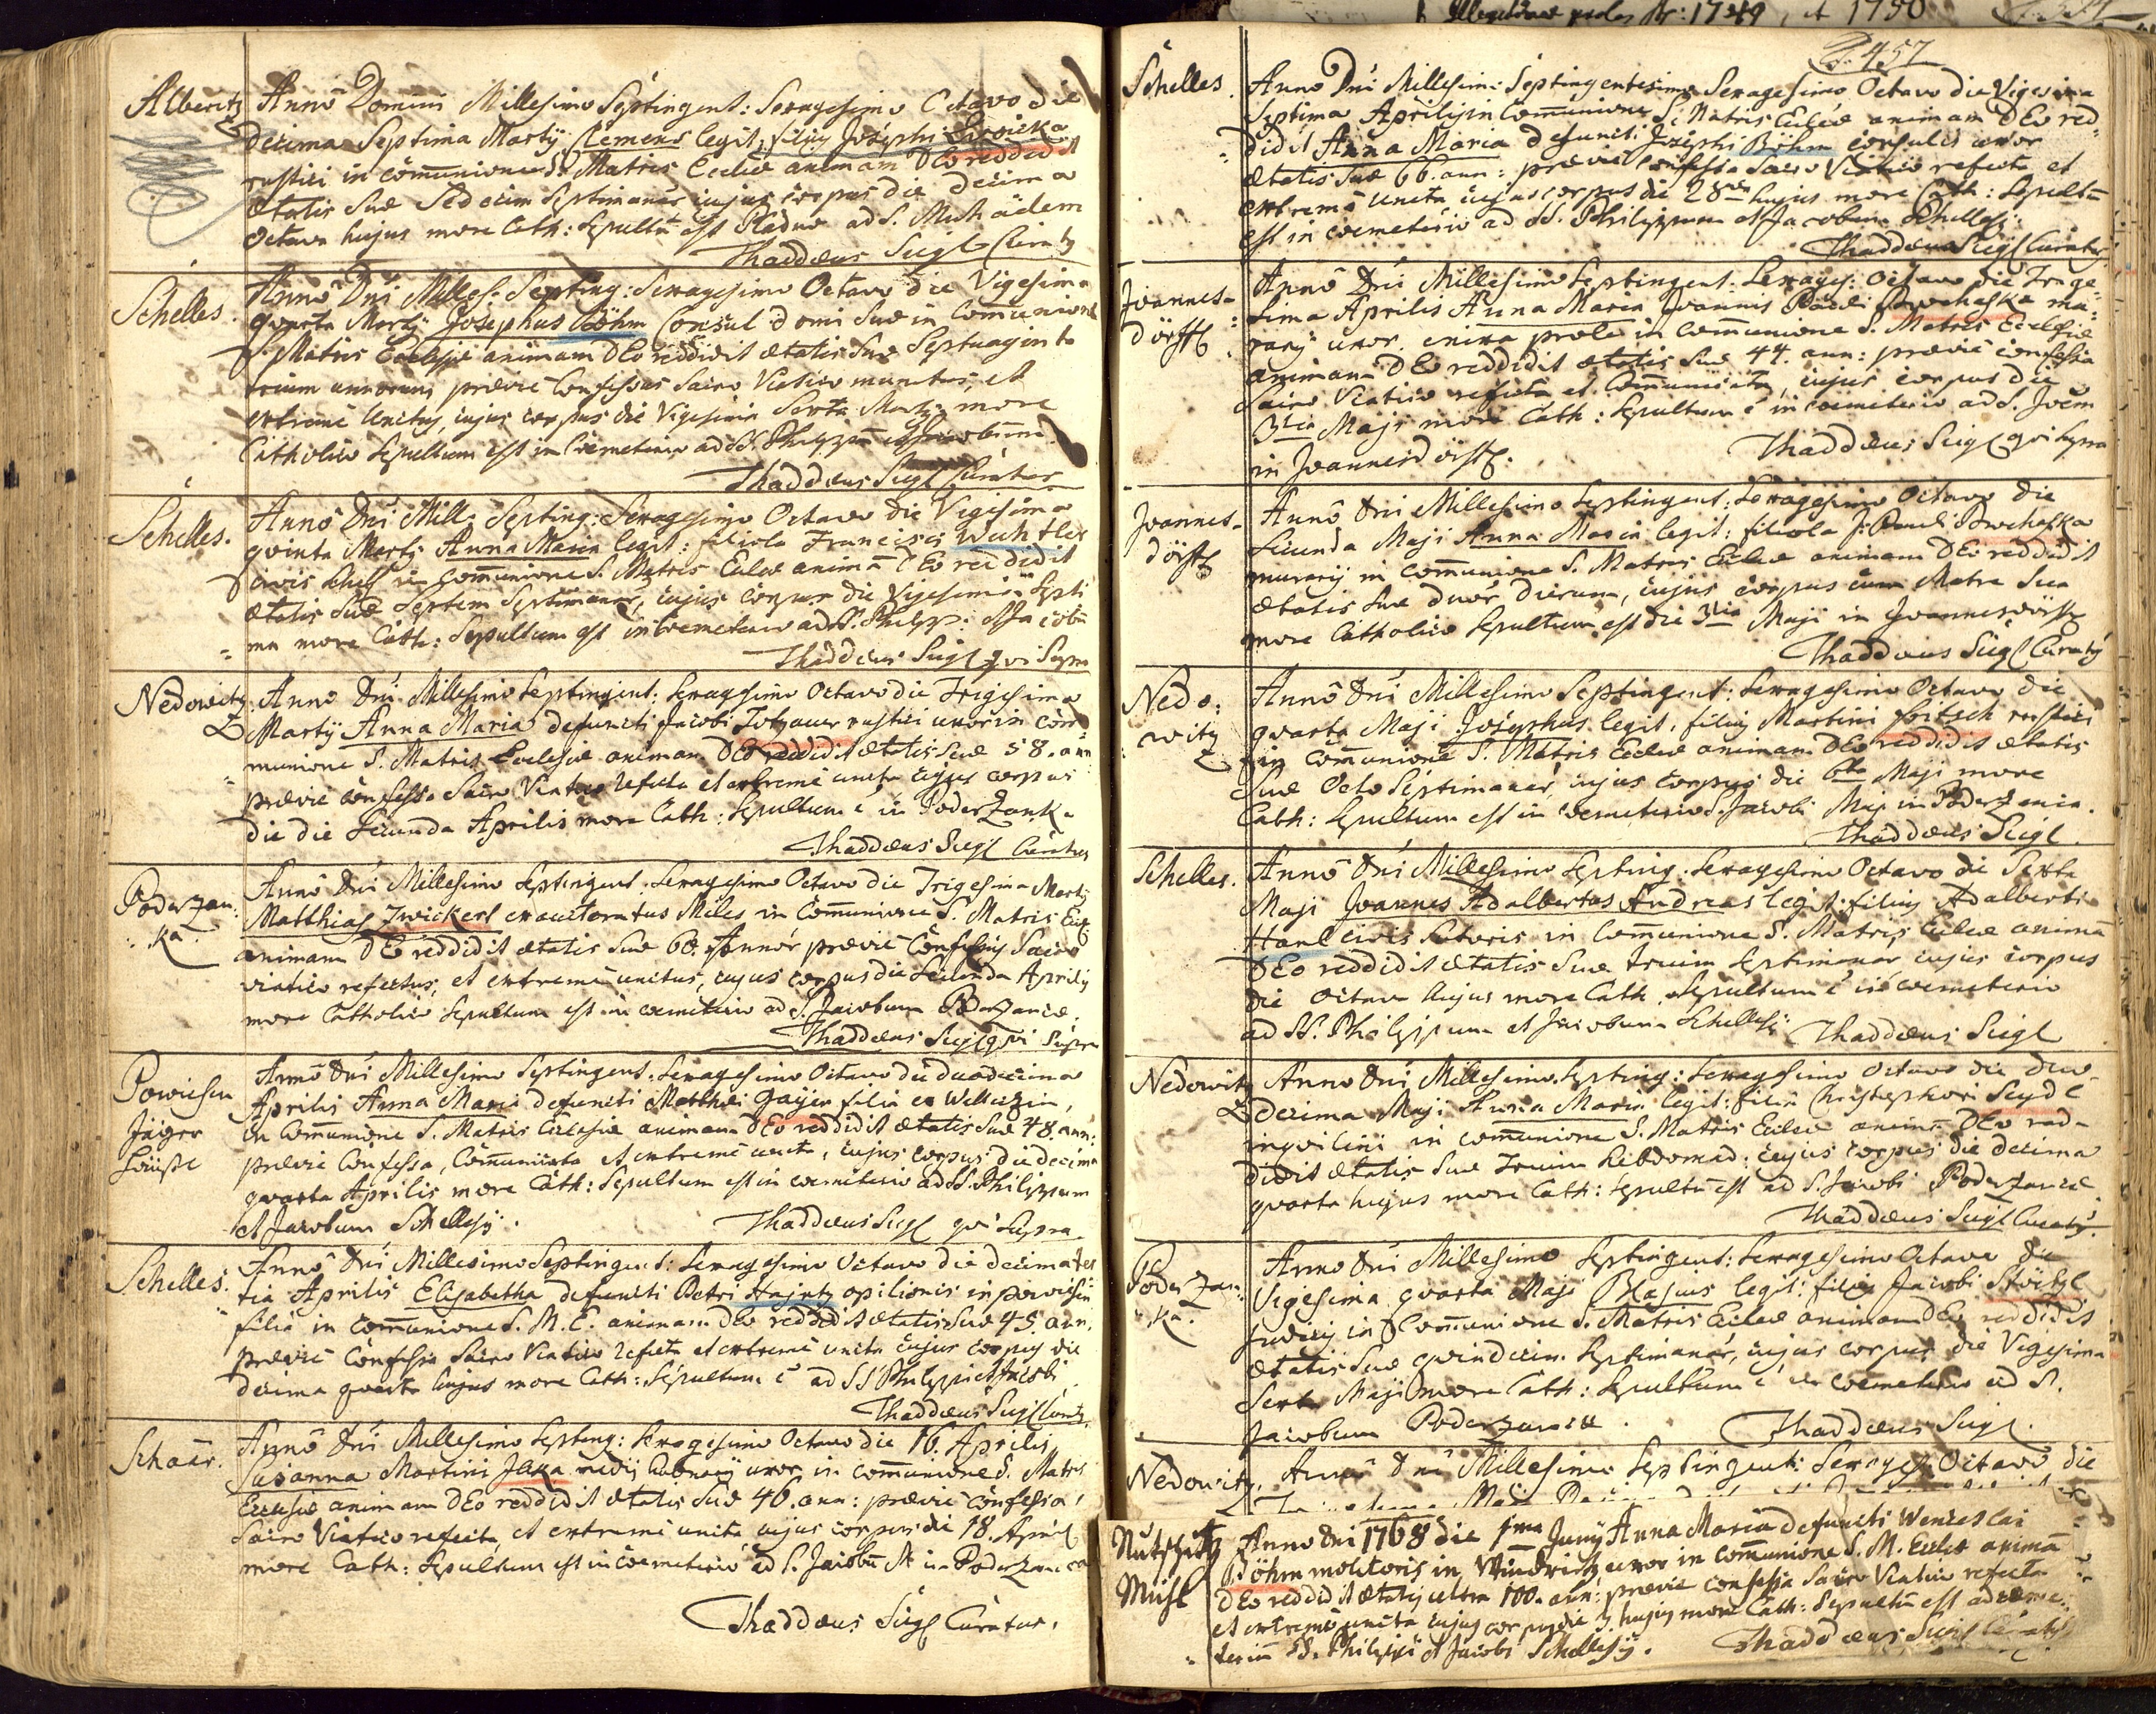 Illegitimae proles Ab: 1749, et 1750
Alberitz Anno Domini Millesimo Septingent: Sexagesimo Octavo die
decima Septima Martÿ Clemens legit: filius Josephi
rustici in com̄unione S. Matris Eccliæ animam DEo reddidit
ætatis Suæ Sedecim Septimanar cujus corpus die decima
octava hujus more Cath: Sepultū est ad S.
Thaddæus Siegl Curatq
Schelles. Anno Dn̄i Milles: Septing: Sexagesimo Octavo die Vigesima
qvarta Martÿ Josephus Böhm Consul domi Suæ in Com̄unione
S. Matris Ecclesiæ animam DEo reddidit ætatis Suæ Septuaginta
trium annorum, prævie Confessus Sacro Viatico munitus, et
extreme Unctus, cujus corpus die Vigesima Sexta Martÿ more
Catholico Sepultum est in Coemeterio ad SS. Philippū et Jacobum.
Thaddæus Siegl Curatus
Schelles. Anno Dn̄i Mill: Septing: Sexagesimo Octavo die Vigesima
qvinta Martÿ Anna Maria legit: filiola Francisci Wuhtler
civis Schell in Com̄unione S. Matris Eccliæ animā DEo reddidit
ætatis Suæ Septem Septimanar, cujus corpus die Vigesima Septi
ma more Cath: Sepultum est in Coemeterio ad SS. Philipp: et Jacobū
Thaddæus Siegl qvi Supra
Nedowitz Anno Dn̄i Millesimo Septingent: Sexagesimo Octavo die Trigesima
Martÿ Anna Maria defuncti Jacobi Totzauer rustici uxor in com̄
munione S. Matris Ecclesiæ animam DEo reddidit ætatis Suæ 58. ann
prævie confessa Sacro Viatico refecta et extreme uncta cujus corpus
die die Secunda Aprilis more Cath: Sepultum ē in Poderzanka
Thaddæus Siegl Curatus
Poderzan: Anno Dn̄i Millesimo Septingent: Sexagesimo Octavo die Trigesima Martÿ
ka Matthias Zwickerl exauctoratus Miles in Com̄unione S. Matris Eccl
animam DEo reddidit ætatis Suæ 60. Annor prævie Confessus Sacro
viatico refectus, et extreme unctus, cujus corpus die Secunda Aprilis
more Catholico Sepultum est in coemeterio ad S. Jacobum Poderzancæ.
Thaddæus Siegl qvi Supra
Powieser Anno Dn̄i Millesimo Septingent: Sexagesimo Octavo die duodecima
Jäger Aprilis Anna Maria defuncti Matthæi Gaÿer filia ex
Häusl in Com̄unione S. Matris Ecclesiæ animam DEo reddidit ætatis Suæ 48. ann:
prævie Confessa, Com̄unicata et extreme uncta, cujus corpus die decima
qvarta Aprilis more Cath: Sepultum est in coemeterio ad SS. Philippum
et Jacobum Schellesÿ. Thaddæus Siegl qvi Supra
Schelles. Anno Dn̄i Millesimo Septingent: Sexagesimo Octavo die decima ter
tia Aprilis Elisabetha defuncti Petri Hajntz opilionis in
filia in com̄unione S. M. E. animam DEo reddidit ætatis Suæ 45. ann.
prævie Confessa Sacro Viatico refecta et extreme uncta cujus corpus die
decima qvarta hujus more Cath: Sepultum ē ad SS Philippi et Jacobi
Thaddæus Siegl Curatq
Schaar. Anno Dn̄i Millesimo Septing: Sexagesimo Octavo die 16. Aprilis
Susanna Martini Jaka medÿ uxor in com̄unione S. Matris
Ecclesiæ animam DEo reddidit ætatis Suæ 46. ann: prævie confessa,
Sacro Viatico refecta, et extreme uncta cujus corpus die 18. April
more Cath: Sepultum est in coemeterio ad S. Jacobū M: in Poderzanca
Thaddæus Siegl Curatus.
457
Schelles. Anno Dn̄i Millesim: Septingentesimo Sexagesimo Octavo die Vigesima
Septima Aprilis in Com̄unione S. Matris Eccliæ animam DEo red
didit Anna Maria defuncti Josephi Böhm consulis uxor
ætatis Suæ 66. ann: prævie confessa Sacro Viatico refecta et
extreme uncta cujus corpus die 28 hujus more Cath: Sepultū
est in coemeterio ad SS. Philippum et Jacobum Schellesÿ:
Thaddæus Siegl Curatus
Joannes- Anno Dn̄i Millesimo Septingent: Sexages: Octavo die Trige
dörffl sima Aprilis Anna Maria Joannis Pauli Prochaska mu
rarÿ uxor, enixa prole in com̄unione S. Matris Ecclesiæ
animam DEo reddidit ætatis Suæ 44. ann: prævie confessa
Sacro Viatico refecta et Com̄unicata, cujus corpus die
3tia Maji more Cath: Sepultum ē in coemeterio ad S. Joem
in Joannesdörffl. Thaddæus Siegl qvi Supra
Joannes- Anno Dn̄i Millesimo Septingent: Sexagesimo Octavo die
dörffl Secunda Maji Anna Maria legit: filiola J: Pauli Prochaska
murarÿ in com̄unione S. Matris Eccliæ animam DEo reddidit
ætatis Suæ duor Dierum, cujus corpus cum Matre Sua
more Catholico Sepultum est die 3tia Maji in Joannesdörffl
Thaddæus Siegl Curatq
Nedo: Anno Dn̄i Millesimo Septingent: Sexagesimo Octavo die
witz qvarta Maji Josephus legit. filius Martini Fritsch rustici
in Com̄unione S. Matris Eccliæ animam DEo reddidit ætatis
Suæ Octo Septimanar, cujus corpus die 6ta Maji more
Cath: Sepultum est in coemeterio S. Jacobi Maj: in Poderzanca.
Thaddæus Siegl.
Schelles. Anno Dn̄i Millesimo Septing: Sexagesimo Octavo die Sexta
Maji Joannes Adalbertus Andreas legit: filius Adalberti
Hanl civis Sutoris in Com̄unione S. Matris Eccliæ animā
DEo reddidit ætatis Suæ trium Septimanar cujus corpus
die octava hujus more Cath. Sepultum ē in coemeterio
ad SS. Philippum et Jacobum Schellesÿ Thaddæus Siegl
Nedowitz Anno Dn̄i Millesimo Septing: Sexagesimo Octavo die duo
decima Maji Anna Maria legit: filia Christophori Seydl
inqvilini in com̄unione S. Matris Eccliæ animā DEo red
didit ætatis Suæ Trium hebdomad: cujus corpus die decima
qvarta hujus more Cath: Sepultū est ad S. Jacobi Poderzancæ
Thaddæus Siegl Curatq.
Poderzan: Anno Dn̄i Millesimo Septingent: Sexagesimo Octavo die
ka. Vigesima qvarta Maji Blasius legit: filius Jacobi Stöitzl
in Com̄unione S. Matris Eccliæ animam DEo reddidit
ætatis Suæ qvindecim Septimanar, cujus corpus die Vigesima
Sexta Maji more Cath: Sepultum ē in coemeterio ad S.
Jacobum Poderzancæ. Thaddæus Siegl.
Nedowitz. Anno Dn̄i Millesimo Septingent: Sexages: Octavo die
Nutschitz Anno Dn̄i 1768 die 1ma Junÿ Anna Maria defuncti Wenceslai
Mühl Böhm molitoris in uxor in com̄unione S. M. Eccliæ animā
DEo reddidit ætatis ultra 100. ann: prævie confessa Sacro Viatico refecta
et extreme uncta cujus corpus die 3 hujus more Cath: Sepultū est ad coeme
terium SS. Philippi et Jacobi Schellesÿ. Thaddæus Siegl Curatq